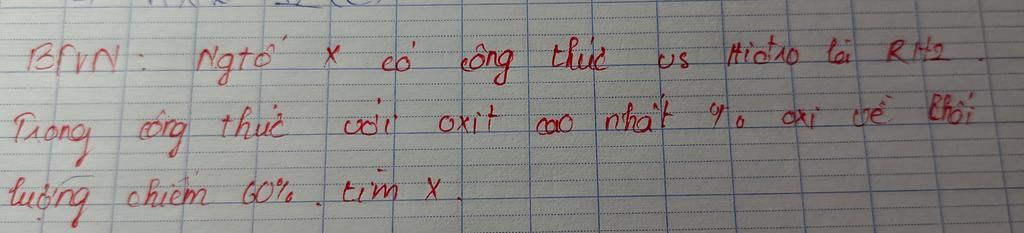 BTVN: Ngtố X có công thức vs Hiđro là RH2.
Trong công thức với oxit cao nhất % oxi về khối
lượng chiếm 60%. tìm X.